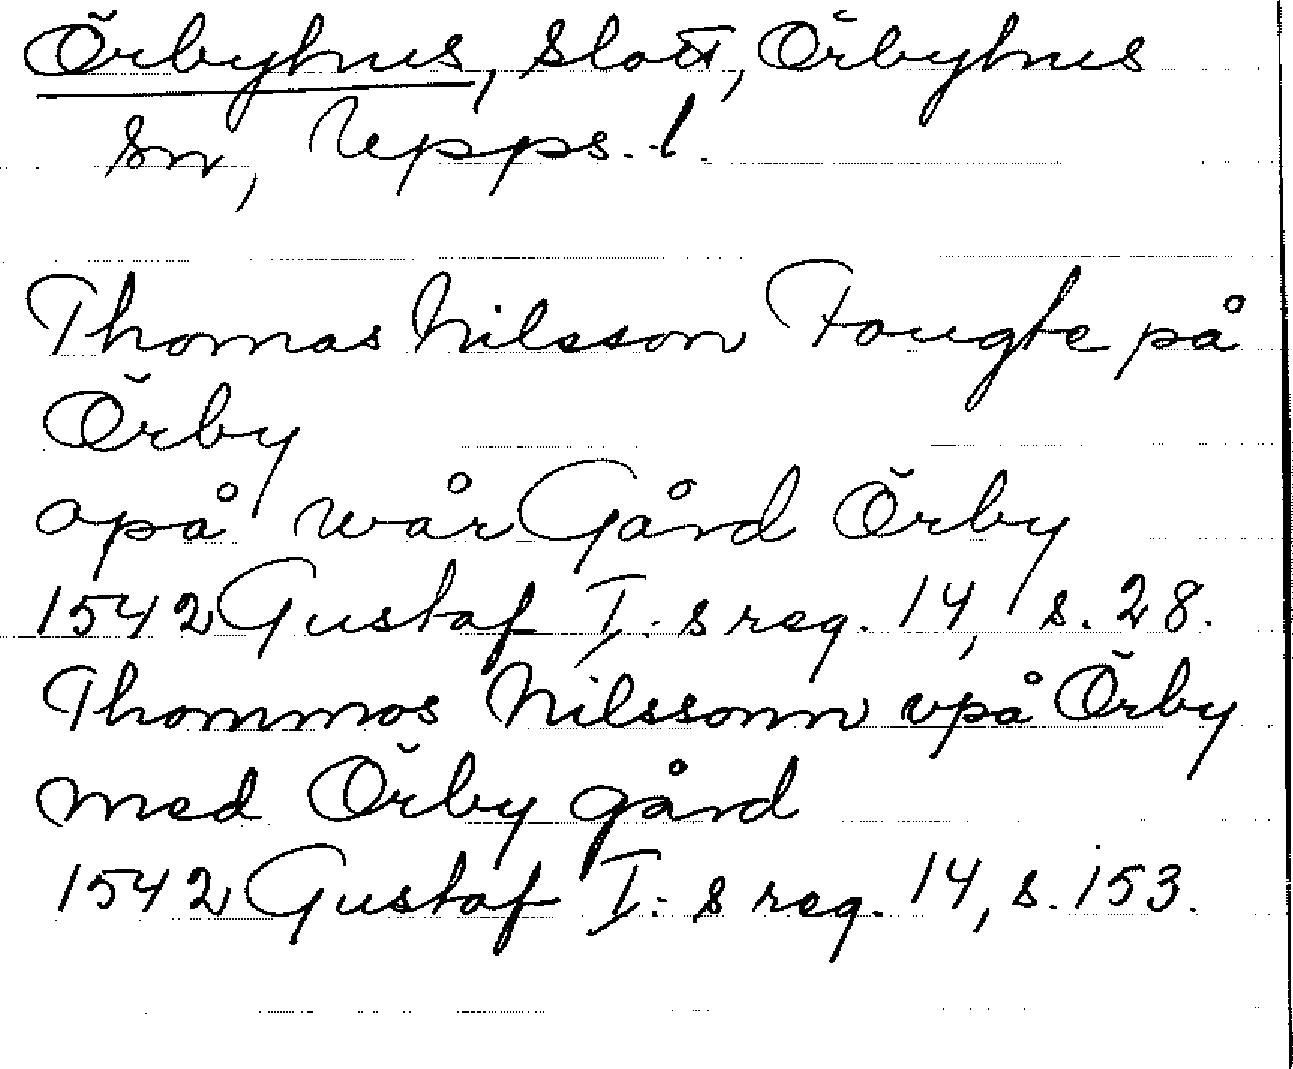 Örbyhus, slott, Örbyhus
sn, Upps. l.
Thomas Nilsson Fougte på
Örby
opå wår Gård Örby
1542 Gustaf I:s reg. 14, s. 28.
Thommos Nilssonn vpå Örby
med Örby gård
1542 Gustaf I:s reg. 14, s. 153.